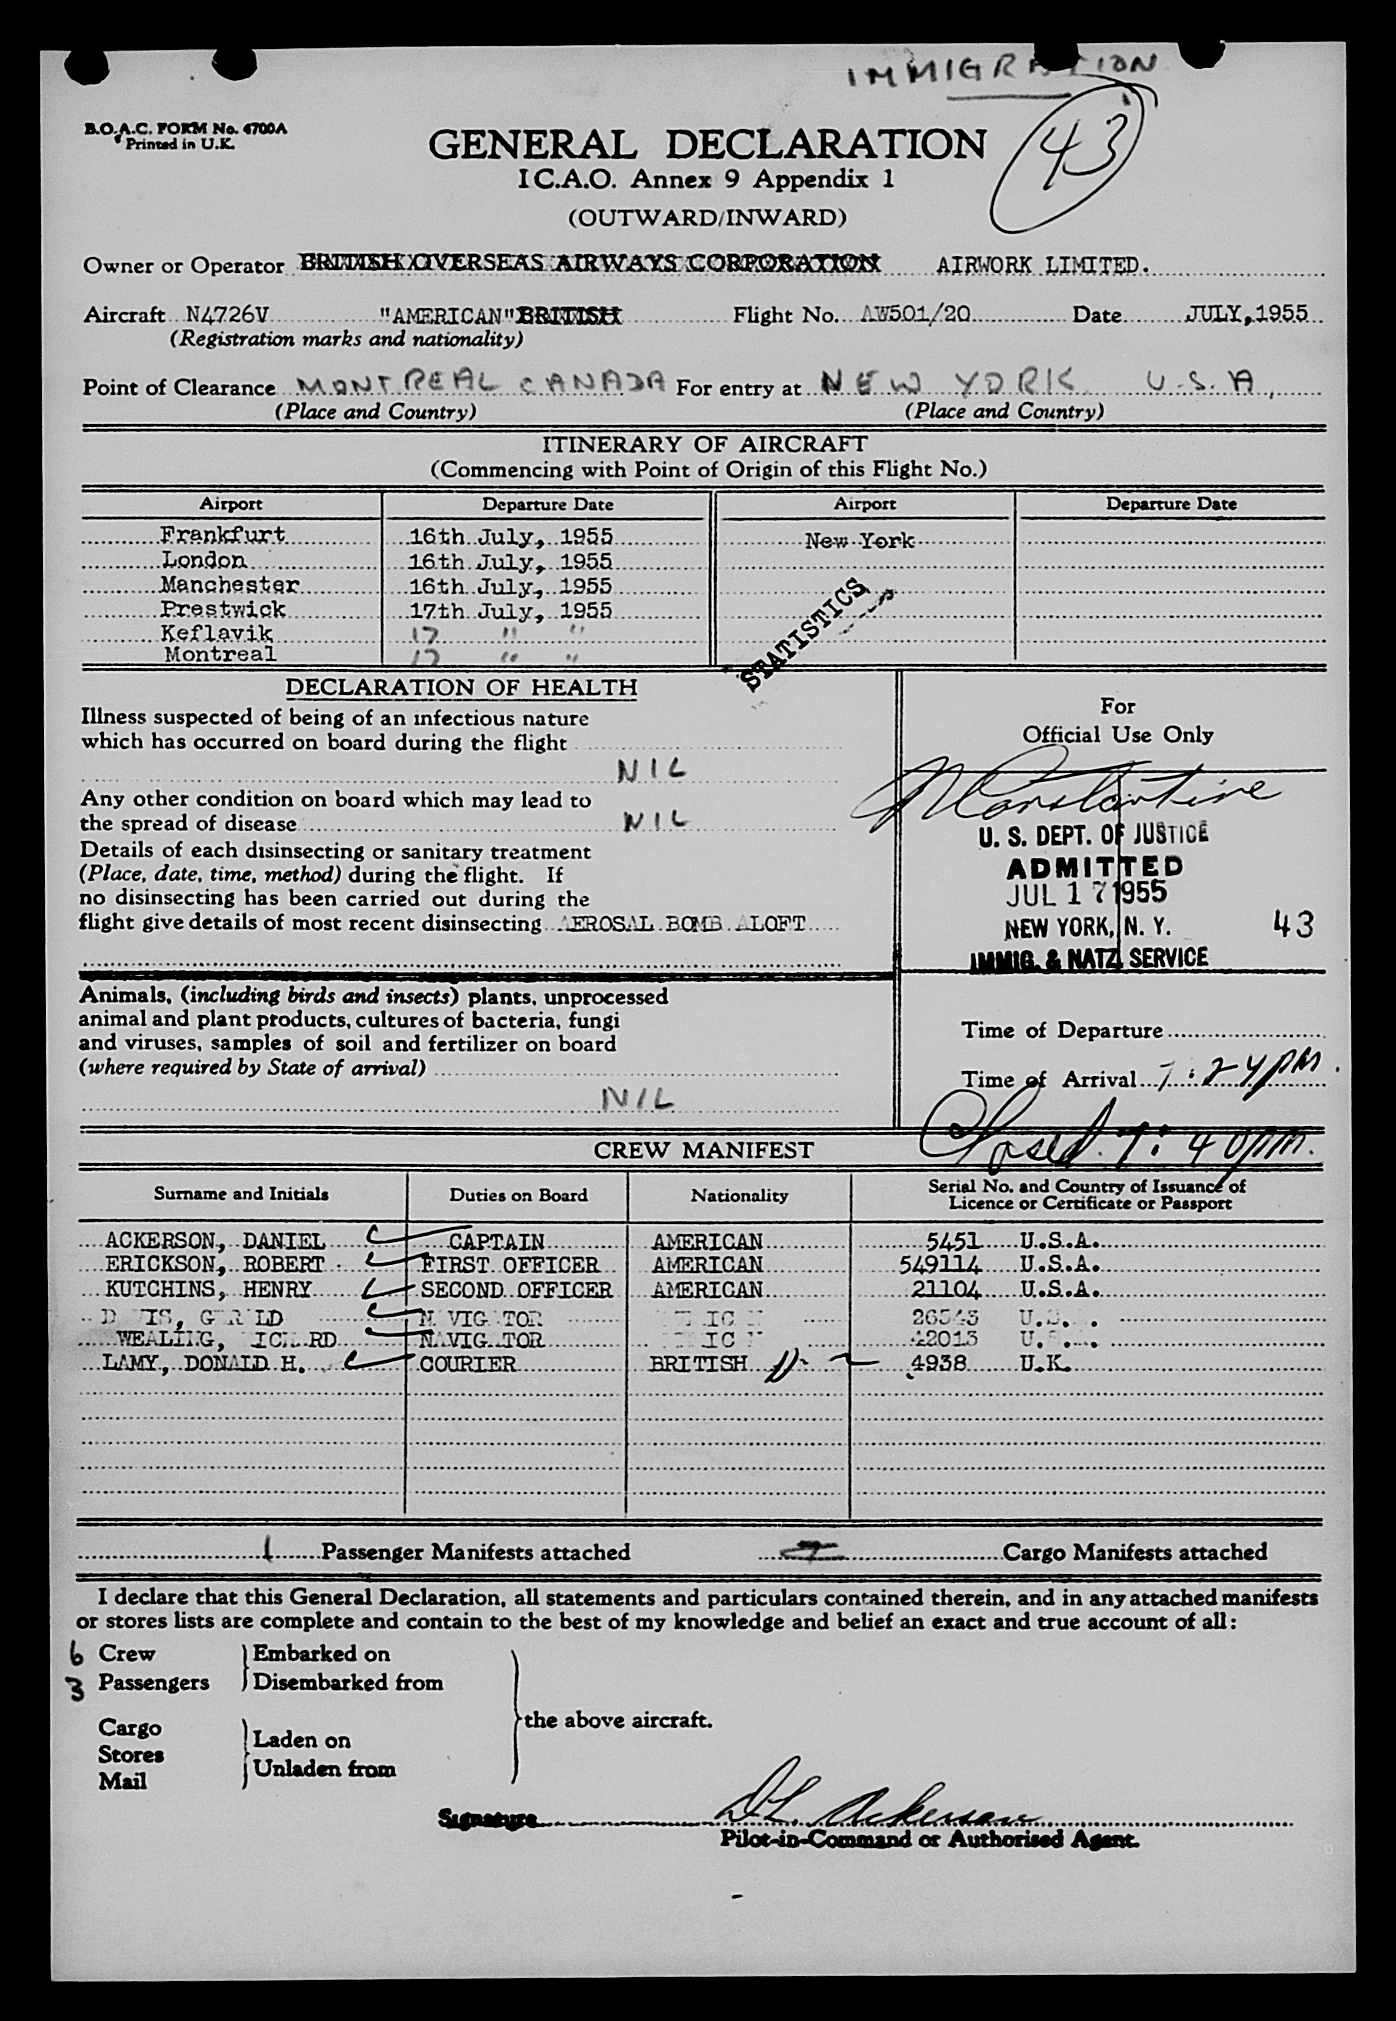 IMMIGRATION
43
B.O.A.C. FORM No. 4700A
Printed in U.K.
GENERAL DECLARATION
I C.A.O. Annex 9 Appendix 1
(OUTWARD/INWARD)
Owner or Operator BRITISH OVERSEAS AIRWAYS CORPORATION AIRWORK LIMITED.
Aircraft N4726V "AMERICAN" BRITISH Flight No. AW501/20 Date JULY, 1955
(Registration marks and nationality)
Point of Clearance MONTREAL CANADA For entry at NEW YORK U.S.A.
(Place and Country) (Place and Country)
ITINERARY OF AIRCRAFT
(Commencing with Point of Origin of this Flight No.)
Airport Departure Date Airport Departure Date
Frankfurt 16th July, 1955 New York
London 16th July, 1955
Manchester 16th July, 1955
Prestwick 17th July, 1955
Keflavik 17 " "
Montreal 17 " "
STATISTICS
DECLARATION OF HEALTH
Illness suspected of being of an infectious nature
which has occurred on board during the flight
NIL
Any other condition on board which may lead to
the spread of disease NIL
Details of each disinsecting or sanitary treatment
(Place, date, time, method) during the flight. If
no disinsecting has been carried out during the
flight give details of most recent disinsecting AEROSAL BOMB ALOFT
For
Official Use Only
Constantine
U. S. DEPT. OF JUSTICE
ADMITTED
JUL 17 1955
NEW YORK, N. Y. 43
IMMIG. & NATZ. SERVICE
Animals, (including birds and insects) plants, unprocessed
animal and plant products, cultures of bacteria, fungi
and viruses, samples of soil and fertilizer on board
(where required by State of arrival)
NIL
Time of Departure
Time of Arrival 7:24 PM.
Closed 7:40 pm.
CREW MANIFEST
Surname and Initials Duties on Board Nationality Serial No. and Country of Issuance of
Licence or Certificate or Passport
ACKERSON, DANIEL CAPTAIN AMERICAN 5451 U.S.A.
ERICKSON, ROBERT FIRST OFFICER AMERICAN 549114 U.S.A.
KUTCHINS, HENRY SECOND OFFICER AMERICAN 21104 U.S.A.
NAVIGATOR
WEALING, NAVIGATOR
LAMY, DONALD H. COURIER BRITISH 4938 U.K.
1 Passenger Manifests attached Cargo Manifests attached
I declare that this General Declaration, all statements and particulars contained therein, and in any attached manifests
or stores lists are complete and contain to the best of my knowledge and belief an exact and true account of all:
6 Crew Embarked on
3 Passengers Disembarked from
the above aircraft.
Cargo Laden on
Stores
Mail Unladen from
Signature D L. Ackerson
Pilot-in-Command or Authorised Agent.